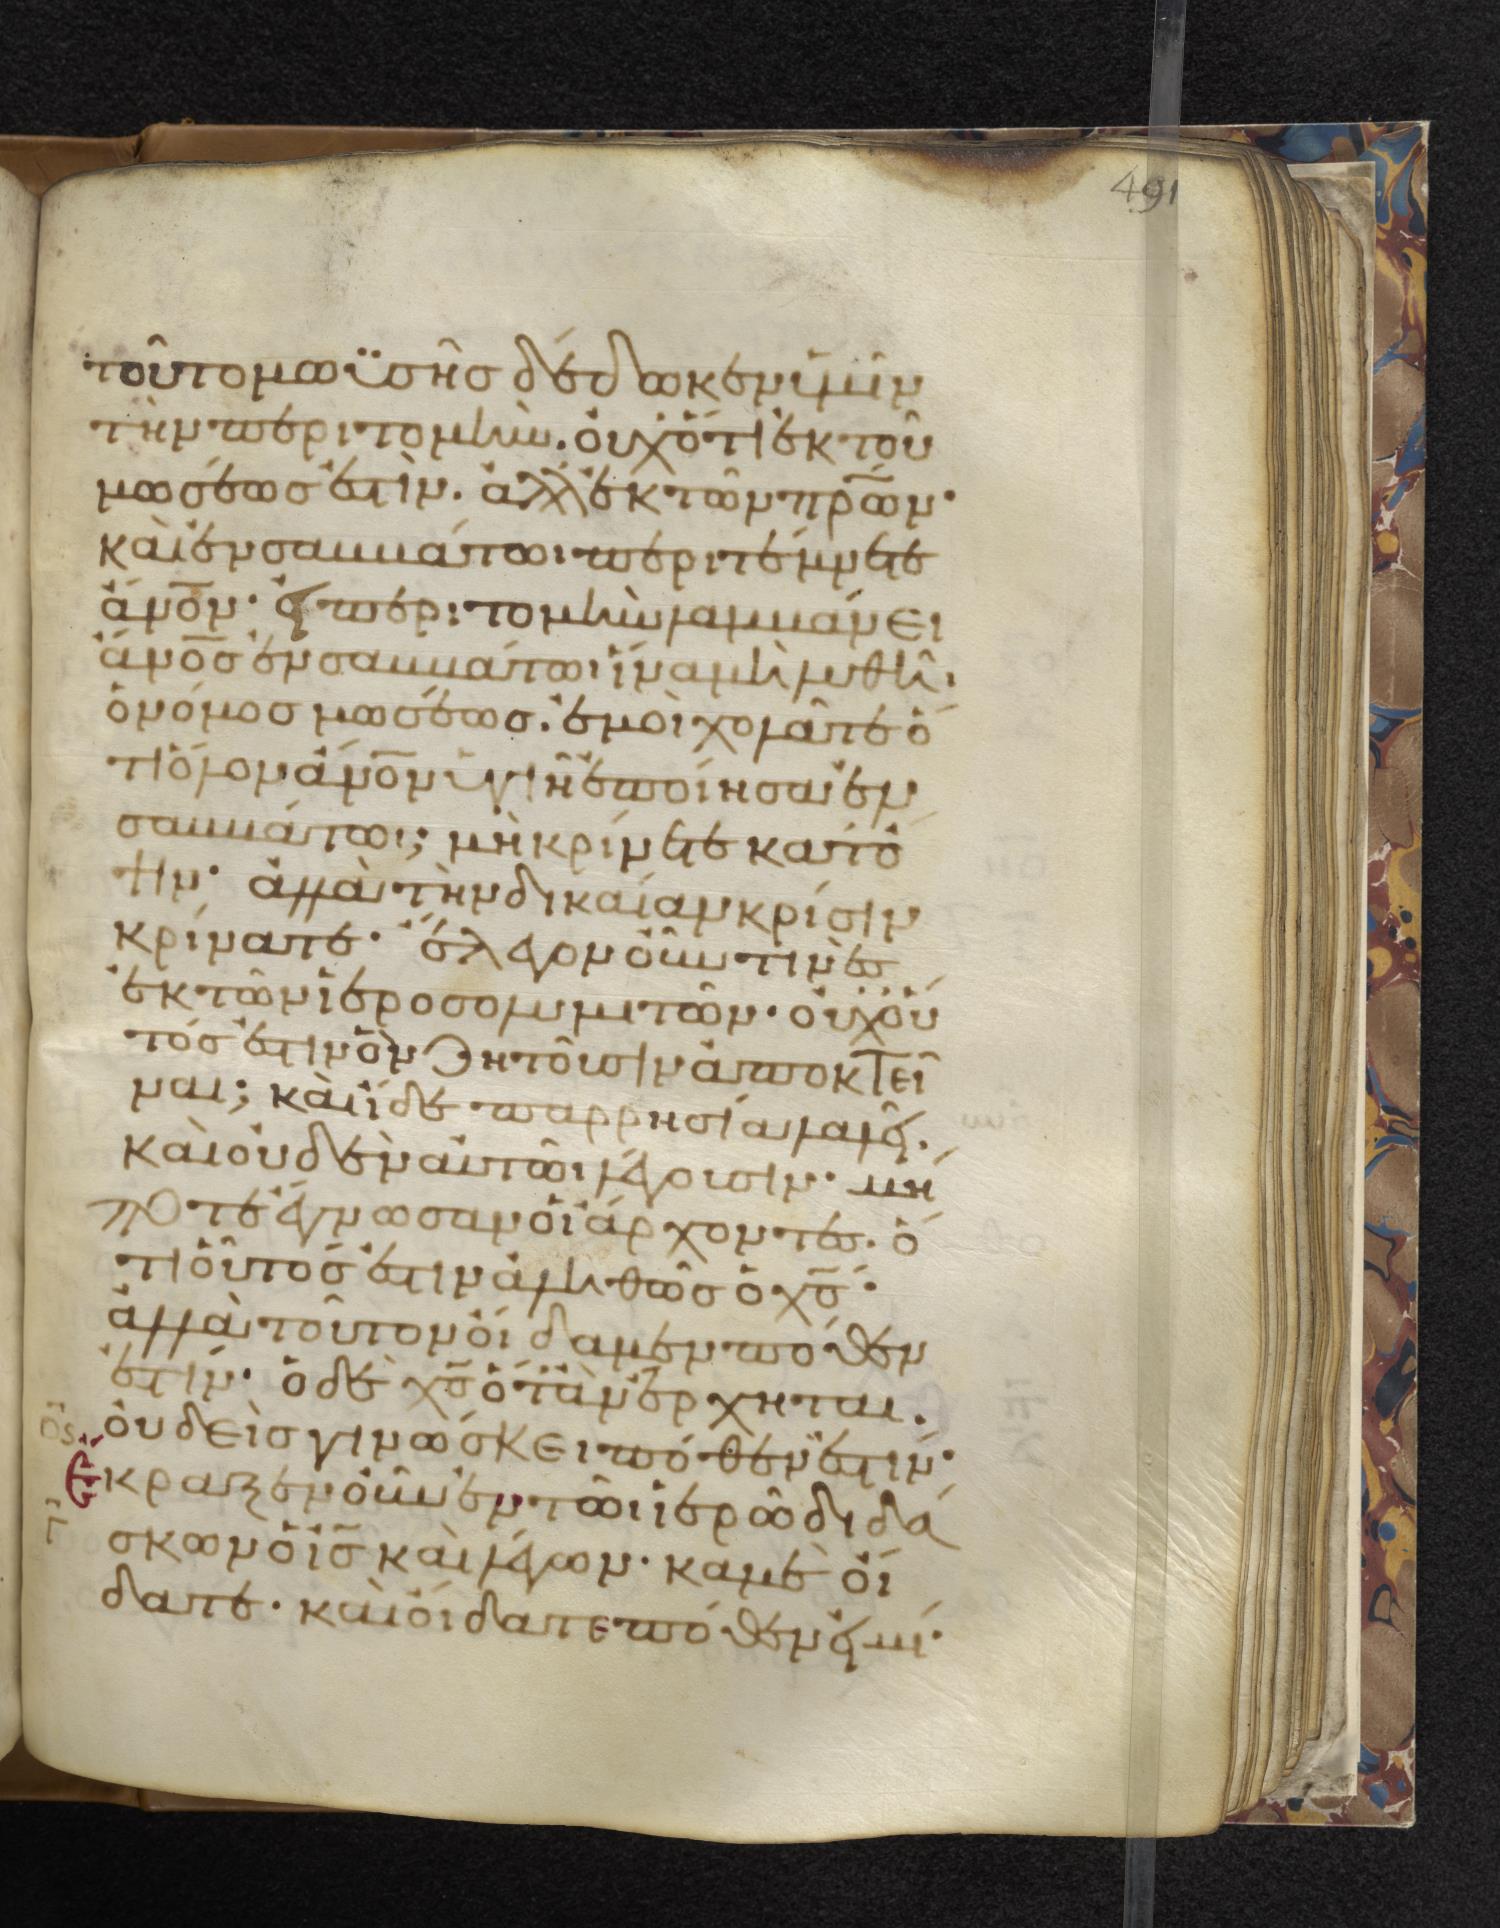 491
τοῦτο μωϋσῆσ δέδωκεν ὑμῖν
τὴν περιτομὴν. οὐχ ὅτι ἐκ τοῦ
μωσέωσ ἐστὶν. ἀλλ ἐκ τῶν πρ̅ων·
καὶ ἐν σαββάτωι περιτέμνετε
ἄνο̅ν· εἰ περιτομὴν λαμβάνει
ἄνο̅σ ἐν σαββάτωι ἵνα μὴ λυθῆ·
ὁ νόμοσ μωσέωσ. ἐμοὶ χολᾶτε ὅ
τι ὅλον ἄνο̅ν ὑγιῆ ἐποίησα ἐν
σαββάτωι; μὴ κρίνετε κατ ὄ
ψιν· ἀλλὰ τὴν δικαίαν κρίσιν
κρίνατε· ἔλεγον οὖν τινὲσ
ἐκ τῶν ἱεροσολυμιτῶν· οὐχ οὗ
τόσ ἐστιν ὃν ζητοῦσιν ἀποκτεῖ
ναι; καὶ ἴδε παρρησία λαλεῖ.
καὶ οὐδὲν αὐτῶι λέγουσιν· μή
ποτε ἔγνωσαν οἱ ἄρχοντεσ. ὅ
τι οὗτόσ ἐστιν ἀληθῶσ ὁ χσ̅·
ἀλλὰ τοῦτον οἴδαμεν πόθεν
ἐστίν· ὁ δὲ χσ̅ ὅταν ἔρχηται.
οὐδεὶσ γινώσκει πόθεν ἐστίν·
ἔκραξεν οὖν ἐν τῶι ἱερῶ διδά
σκων ὁ ισ̅ καὶ λέγων· καμὲ οἴ
δατε· καὶ οἴδατε πόθεν εἰμί·